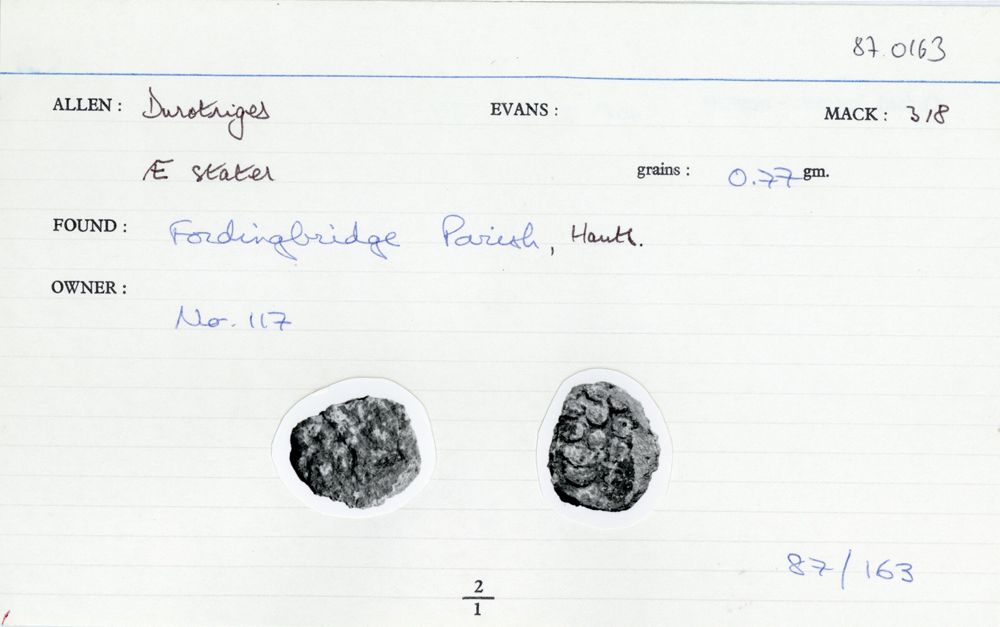 87.0163
ALLEN : Durotriges EVANS : MACK : 318
Æ stater grains : 0.77 gm.
FOUND : Fordingbridge Parish, Hants.
OWNER :
No. 117
87/163
2
1